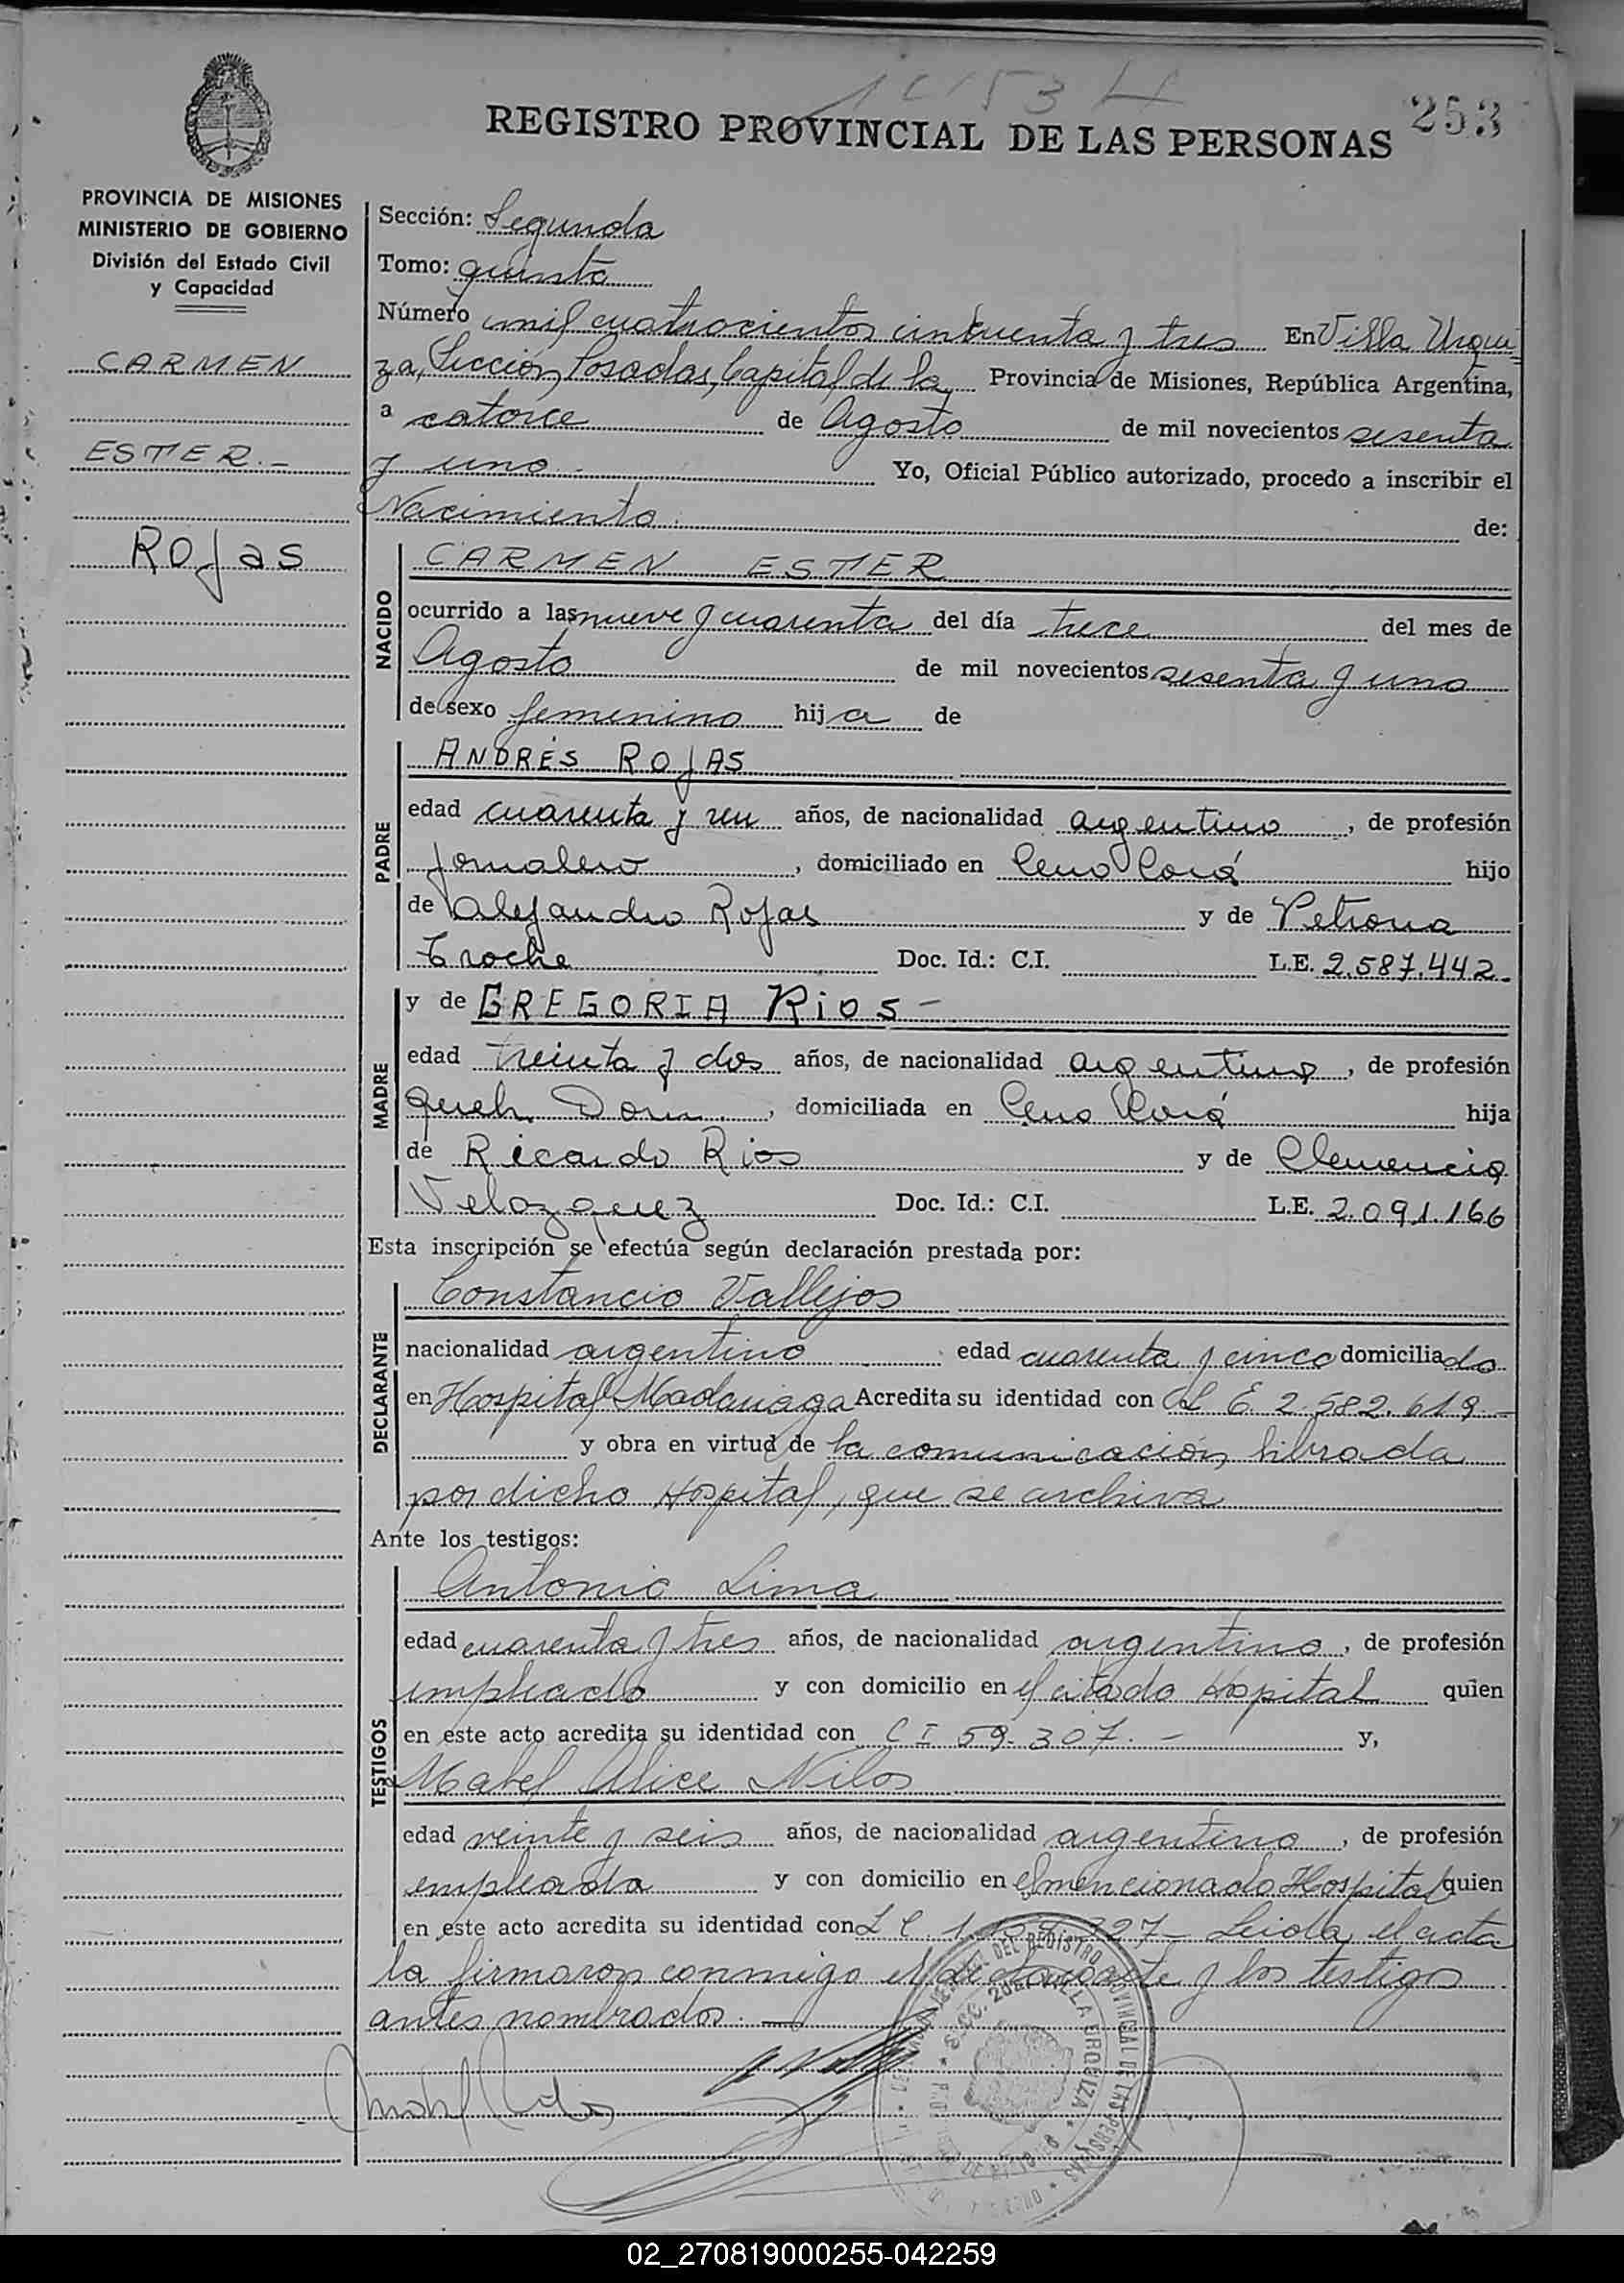 253
REGISTRO PROVINCIAL DE LAS PERSONAS
PROVINCIA DE MISIONES
MINISTERIO DE GOBIERNO
División del Estado Civil
y Capacidad
CARMEN
ESTER.-
Rojas
Sección: Segunda
Tomo: quinto
Número mil cuatrocientos cincuenta y tres En Villa Urqui=
za, Sección Posadas, Capital de la Provincia de Misiones, República Argentina,
a catorce de Agosto de mil novecientos sesenta
y uno Yo, Oficial Público autorizado, procedo a inscribir el
Nacimiento de:
NACIDO
CARMEN ESTER
ocurrido a las nueve y cuarenta del día trece del mes de
Agosto de mil novecientos sesenta y uno
de sexo femenino hija de
PADRE
ANDRÉS ROJAS
edad cuarenta y seis años, de nacionalidad argentino, de profesión
jornalero, domiciliado en Cerro Corá hijo
de Alejandro Rojas y de Petrona
Troche Doc. Id.: C.I. L.E. 2.587.442.
MADRE
y de GREGORIA Rios -
edad treinta y dos años, de nacionalidad argentina, de profesión
queh. Dom., domiciliada en Cerro Corá hija
de Ricardo Rios y de Clemencia
Velazquez Doc. Id.: C.I. L.E. 2.091.166
Esta inscripción se efectúa según declaración prestada por:
DECLARANTE
Constancio Vallejos
nacionalidad argentino edad cuarenta y cinco domiciliado
en Hospital Madariaga Acredita su identidad con L E. 2.582.619.-
y obra en virtud de la comunicación librada
por dicho Hospital, que se archiva
Ante los testigos:
TESTIGOS
Antonio Lima
edad cuarenta y tres años, de nacionalidad argentino, de profesión
empleado y con domicilio en el citado Hospital quien
en este acto acredita su identidad con C I 59.307.- y,
Mabel Alice Nilos
edad veinte y seis años, de nacionalidad argentina, de profesión
empleada y con domicilio en el mencionado Hospital quien
en este acto acredita su identidad con L C Leida el acta
la firmaron conmigo el declarante y los testigos
antes nombrados.-
DEL REGISTRO PROVINCIAL DE LAS PERSONAS
SECC. 2da. VILLA URQUIZA
02_270819000255-042259